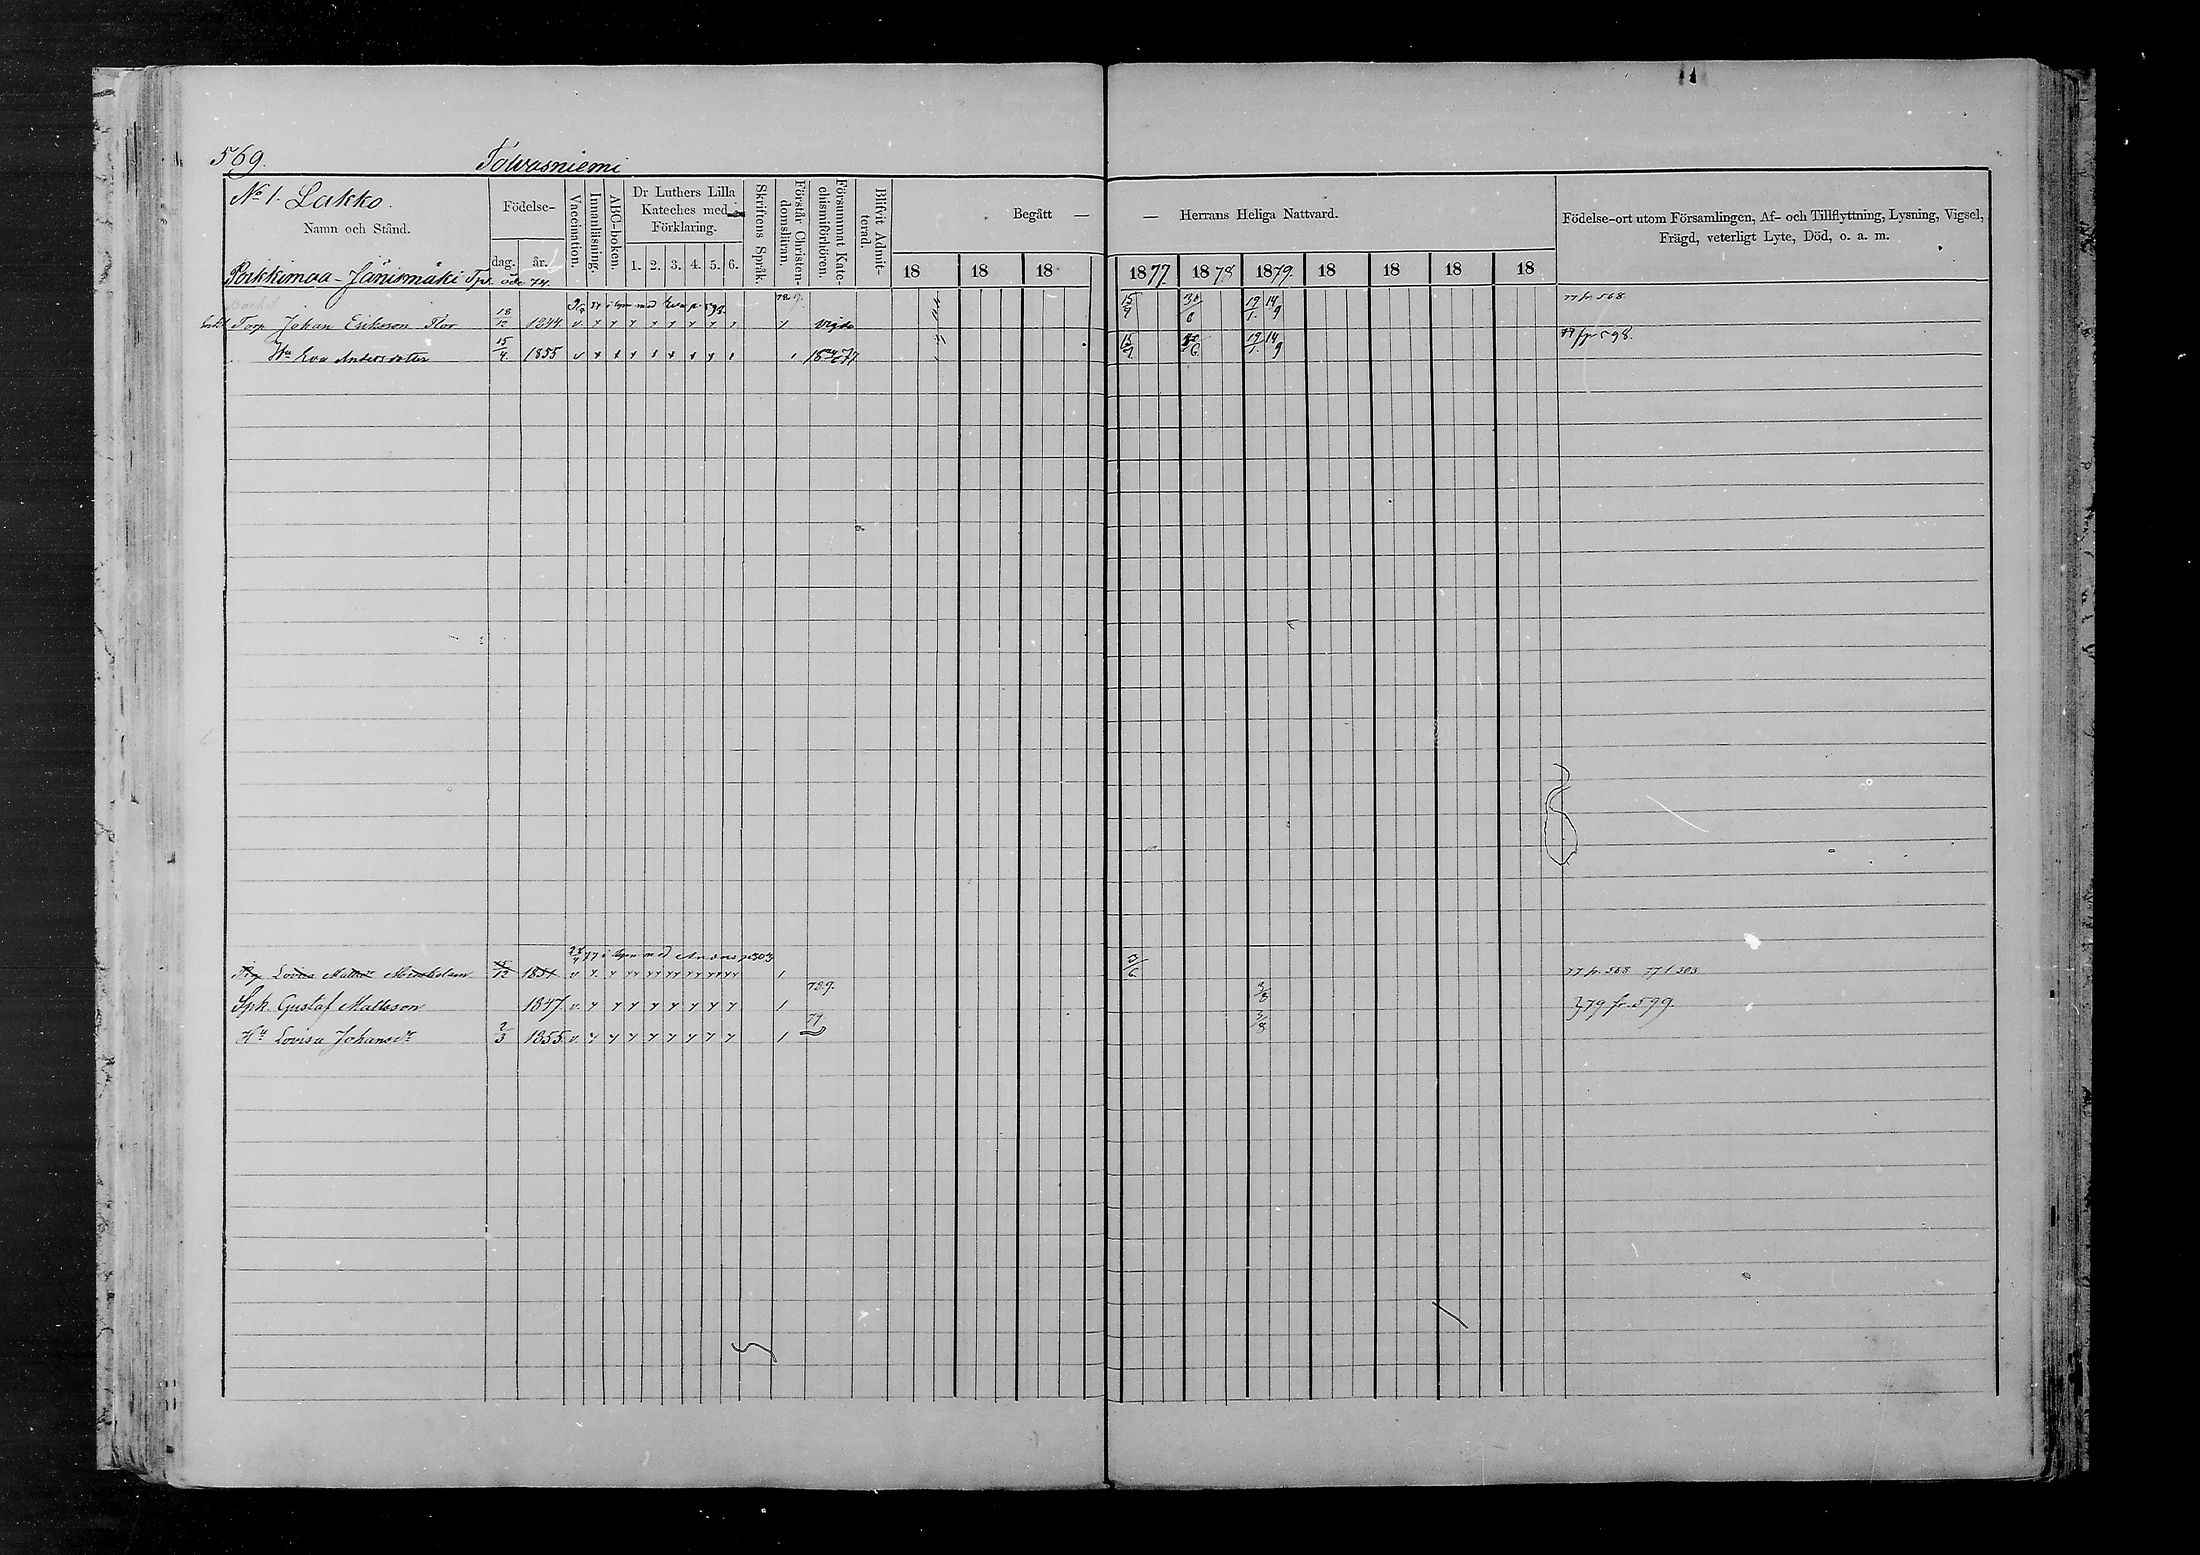 569.
Tolvasniemi
No 1. Lakko.
Namn och Stånd.
Födelse-
dag. år.
Vaccination.
Innanläsning.
ABC-boken.
Dr Luthers Lilla
Kateches med
Förklaring.
1. 2. 3. 4. 5. 6.
Skriftens Språk.
Förstår Christen-
domsläran.
Försummat Kate-
chismiförhören.
Blifvit Admit-
terad.
Begått — — Herrans Heliga Nattvard.
18 18 18 1877. 1878 1879. 18 18 18 18
Födelse-ort utom Församlingen, Af- och Tillflyttning, Lysning, Vigsel,
Frägd, veterligt Lyte, Död, o. a. m.
Jänismäki Tp. öde 74.
77 fr. 568.
Torp Johan Eriksson Flor 18/12 1844. v. vigde 15/7 30/6 19/1. 14/9
79 fr 598.
Hu Eva Andersdoter 15/4. 1855 v 15/7 30/6 19/1. 14/9
i lysn med p. 303
Lovisa 12 1851 v. 3/6 77 fr. 568 77 t 303
Spk. Gustaf Matsson 1847. v. 1 789. 3/8 } 79 fr. 599.
Hu Lovisa Johansdr 2/3 1855 v. 1 77 3/8